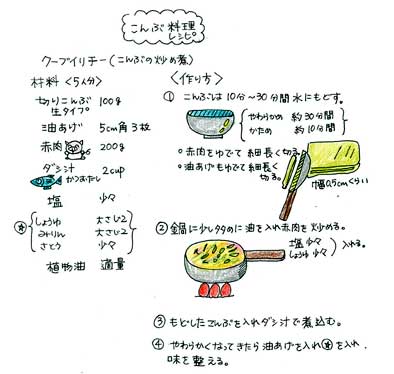 こんぶ料理
レシピ
クーブイリチー(こんぶの炒め煮)
材料〈5人分〉
切りこんぶ 100g
生タイプ
油あげ 5cm角3枚
赤肉 200g
ダシ汁 2cup
かつおだし
塩 少々
しょうゆ 大さじ2
みりん 大さじ2
さとう 少々
植物油 適量
〈作り方〉
① こんぶは10分～30分間水にもどす。
やわらかめ 約30分間
かため 約10分間
○赤肉をゆでて細長く切る。
○油あげもゆでて細長く切る。
幅0.5cmくらい
② 金鍋に少し多めに油を入れ赤肉を炒める。
塩 少々
しょうゆ 少々
入れる。
③ もどしたこんぶを入れダシ汁で煮込む。
④ やわらかくなってきたら油あげを入れ☆を入れ、
味を整える。